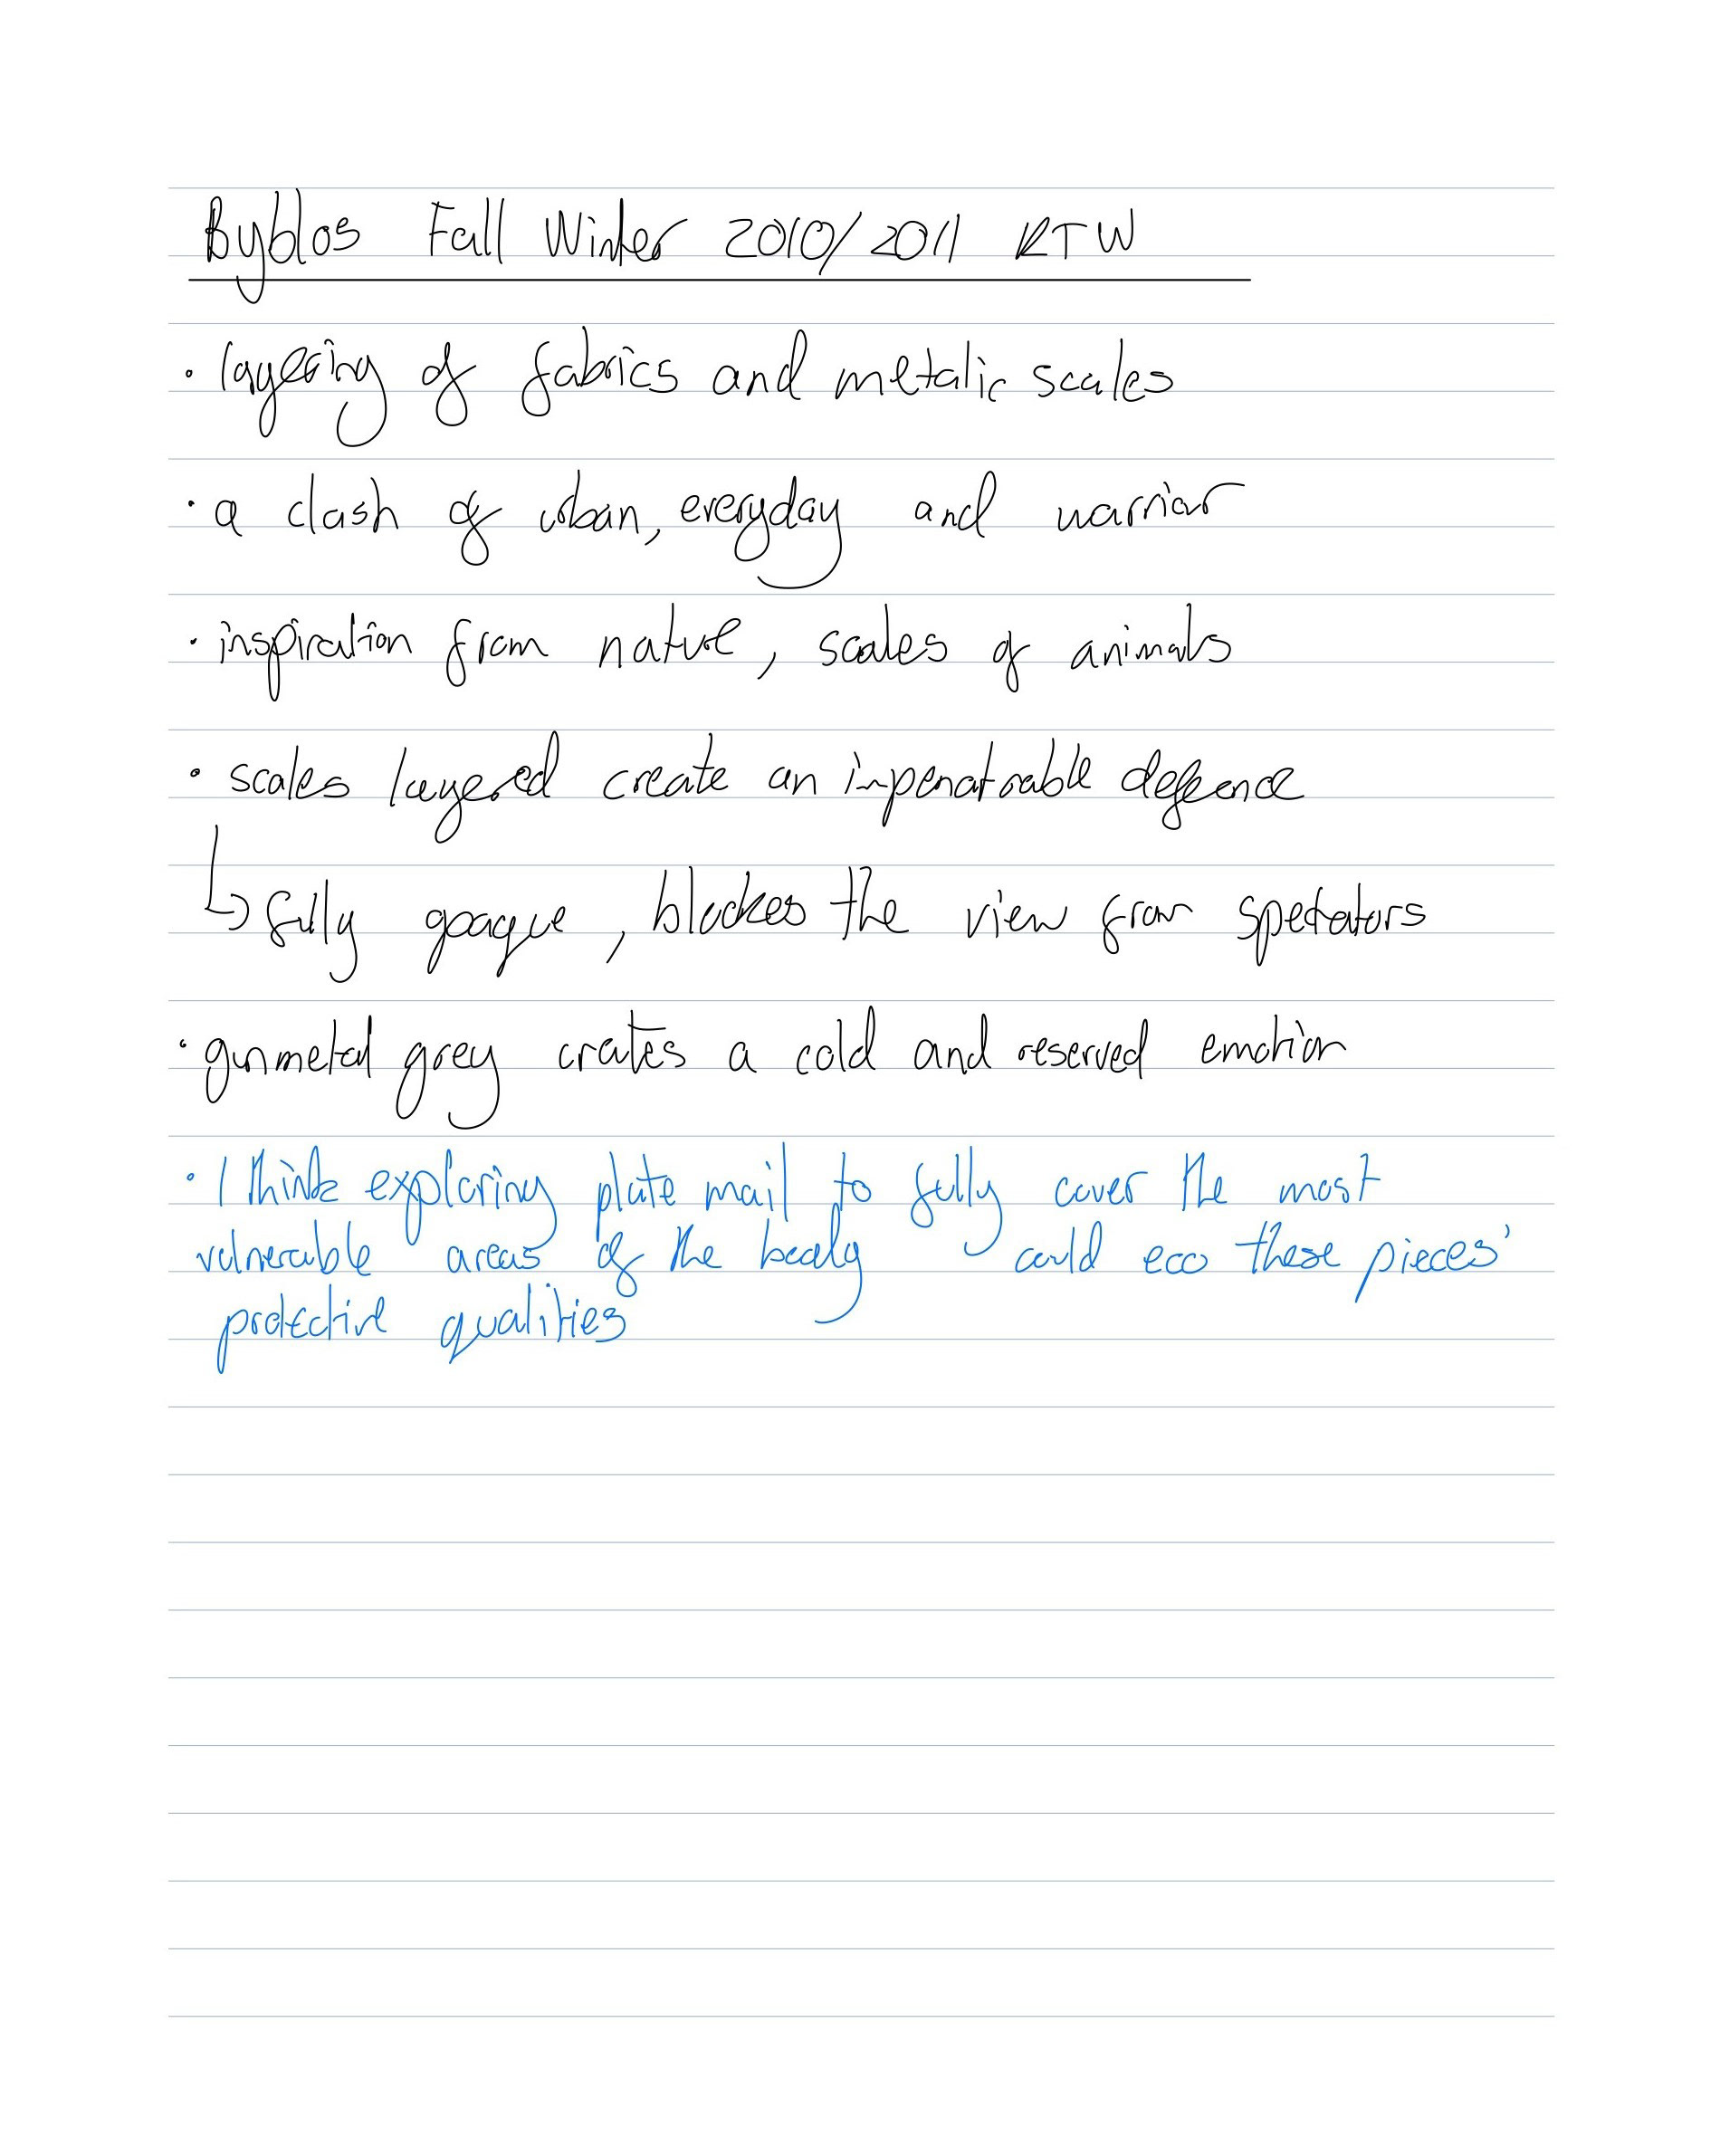 Byblos Fall Winter 2010/2011 RTW
• layering of fabrics and metalic scales
• a clash of urban, everyday and warrior
• inspiration from nature, scales of animals
• scales layered create an inpenatrable defence
↳ fully goaque, blockes the view from spectators
• gunmetal grey crates a cold and reserved emotion
• I think exploring plate mail to fully cover the most
vulnerable areas of the body could eco these pieces'
protective qualities